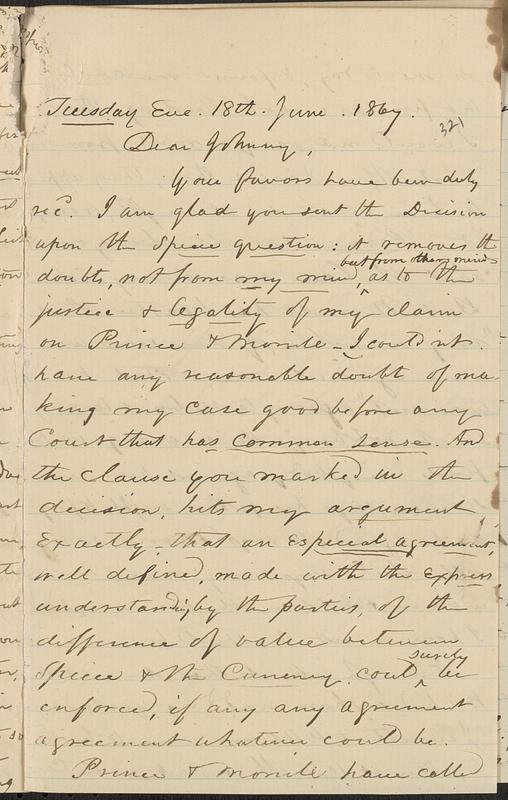 Tuesday Eve. 18th. June. 1867.
321
Dear Johnny,
Your favors have been duly
rec'd. I am glad you sent the Decision
upon the Specie question: it removes the
doubts, not from my mind, but from others minds as to the
justice & legality of my claim
on Prince & . I could nt.
have any reasonable doubt of ma-
king my case good before any
Court that has Common Sense. And
the clause you marked in the
decision, hits my argument
exactly - that an especial agreement,
well defined, made with the express
understanding by the parties, of the
difference of value between
Specie & the Currency, could surely be
enforced, if any any agreement
agreement whatever could be.
Prince & have called